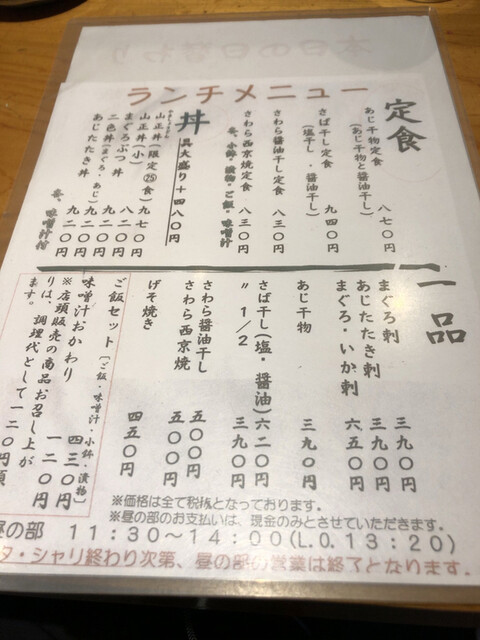 本日の日替わり
ランチメニュー
定食
あじ干物定食
(あじ干物と醤油干し)
八七〇円
さば干し定食
(塩干し・醤油干し)
九四〇円
さわら醤油干し定食 八三〇円
さわら西京焼定食 八三〇円
香、小鉢・漬物・ご飯・味噌汁
丼
具大盛り+四八〇円
山正丼(限定㉕食) 九七〇円
山正丼(小) 八二〇円
まぐろぶつ丼 九二〇円
二色丼(まぐろ、あじ) 九二〇円
あじたたき丼 九二〇円
香、味噌汁付
一品
まぐろ刺 三九〇円
あじたたき刺 三九〇円
まぐろ・いか刺 六五〇円
あじ干物 三九〇円
さば干し(塩・醤油) 六二〇円
〃 1/2 三九〇円
さわら醤油干し 五〇〇円
さわら西京焼 五〇〇円
げそ焼き 四五〇円
ご飯セット〔ご飯・味噌汁・小鉢・漬物〕
四三〇円
味噌汁おかわり 一二〇円
※店頭販売の商品お召し上が
りは、調理代として一二〇円頂
ます。
※価格は全て税抜となっております。
※昼の部のお支払いは、現金のみとさせていただきます。
昼の部 11:30~14:00(L.O.13:20)
タ・シャリ終わり次第、昼の部の営業は終了となります。